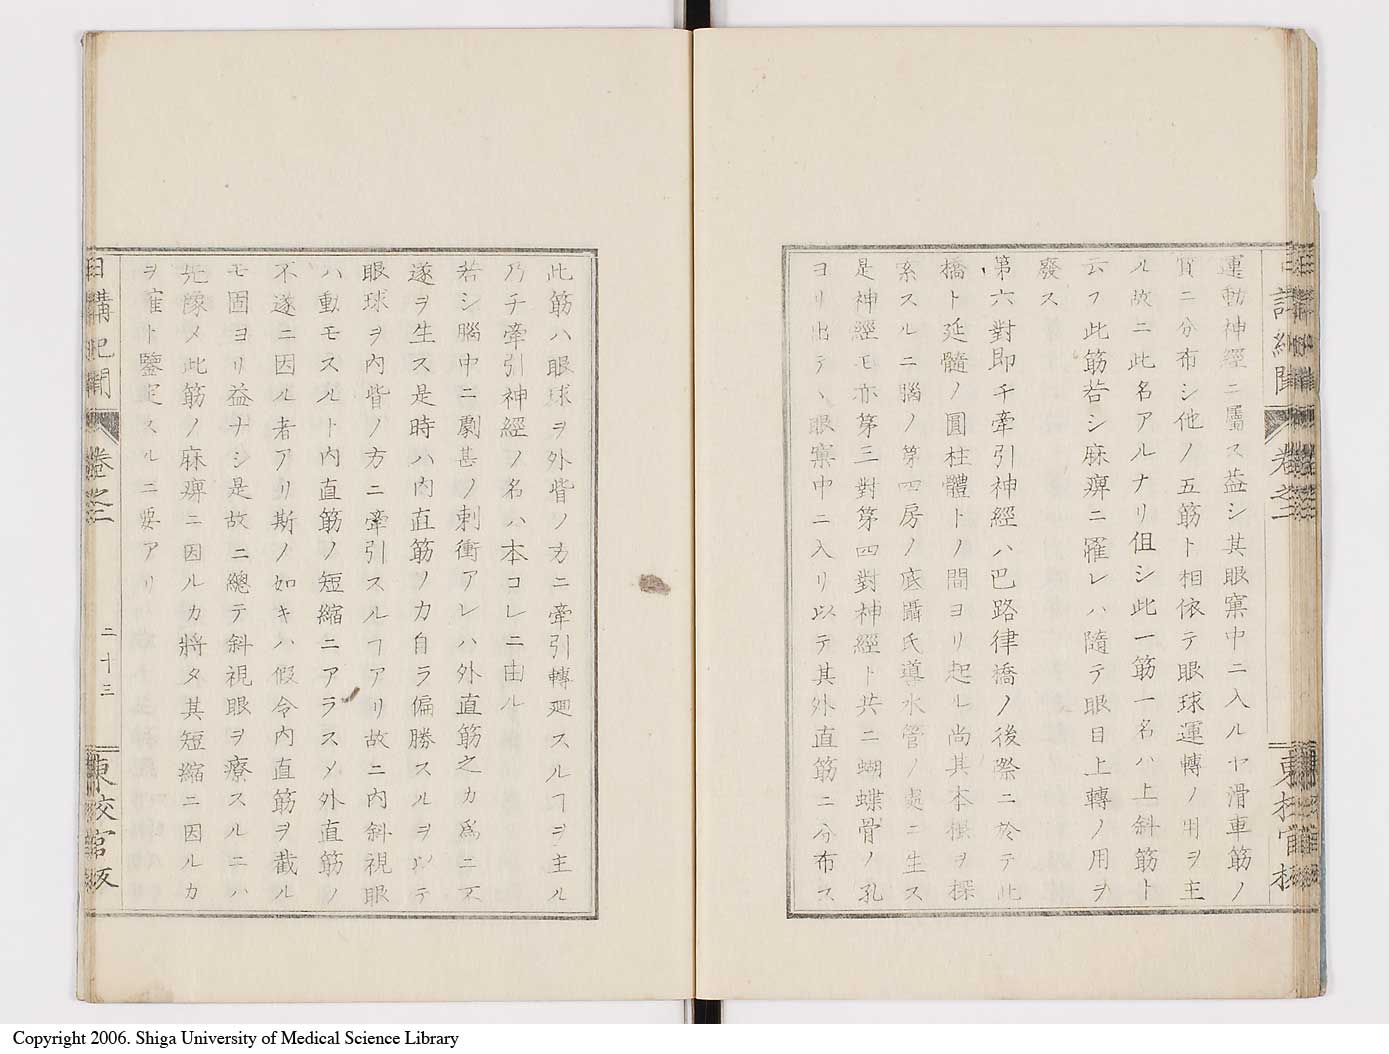 運動神經ニ屬ス葢シ其眼窠中ニ入ルヤ滑車筋ノ
質ニ分布シ他ノ五筋ト相依テ眼球運轉ノ用ヲ主
ル故ニ此名アルナリ伹シ此一筋一名ハ上斜筋ト
云フ此筋若シ麻痹ニ罹レハ隨テ眼目上轉ノ用ヲ
廢ス
第六對即チ牽引神經ハ巴路律橋ノ後際ニ於テ此
橋ト延髓ノ圓柱體トノ間ヨリ起ル尚其本根ヲ探
索スルニ腦ノ第四房ノ底聶氏導水管ノ處ニ生ス
是神經モ亦第三對第四對神經ト共ニ蝴蝶骨ノ孔
ヨリ出テヽ眼窠中ニ入リ以テ其外直筋ニ分布ス
此筋ハ眼球ヲ外眥ノ方ニ牽引轉廻スルヿヲ主ル
乃チ牽引神經ノ名ハ本コレニ由ル
若シ腦中ニ劇甚ノ刺衝アレハ外直筋之カ爲ニ不
遂ヲ生ス是時ハ內直筋ノ力自ラ偏勝スルヲ以テ
眼球ヲ內眥ノ方ニ牽引スルヿアリ故ニ內斜視眼
ハ動モスルト內直筋ノ短縮ニアラスメ外直筋ノ
不遂ニ因ル者アリ斯ノ如キハ假令內直筋ヲ截ル
モ固ヨリ益ナシ是故ニ總テ斜視眼ヲ療スルニハ
豫メ此筋ノ麻痹ニ因ルカ將タ其短縮ニ因ルカ
ヲ確ト鑒定スルニ要アリ
日講記聞 卷之二 二十三 東校官版
Copyright 2006. Shiga University of Medical Science Library